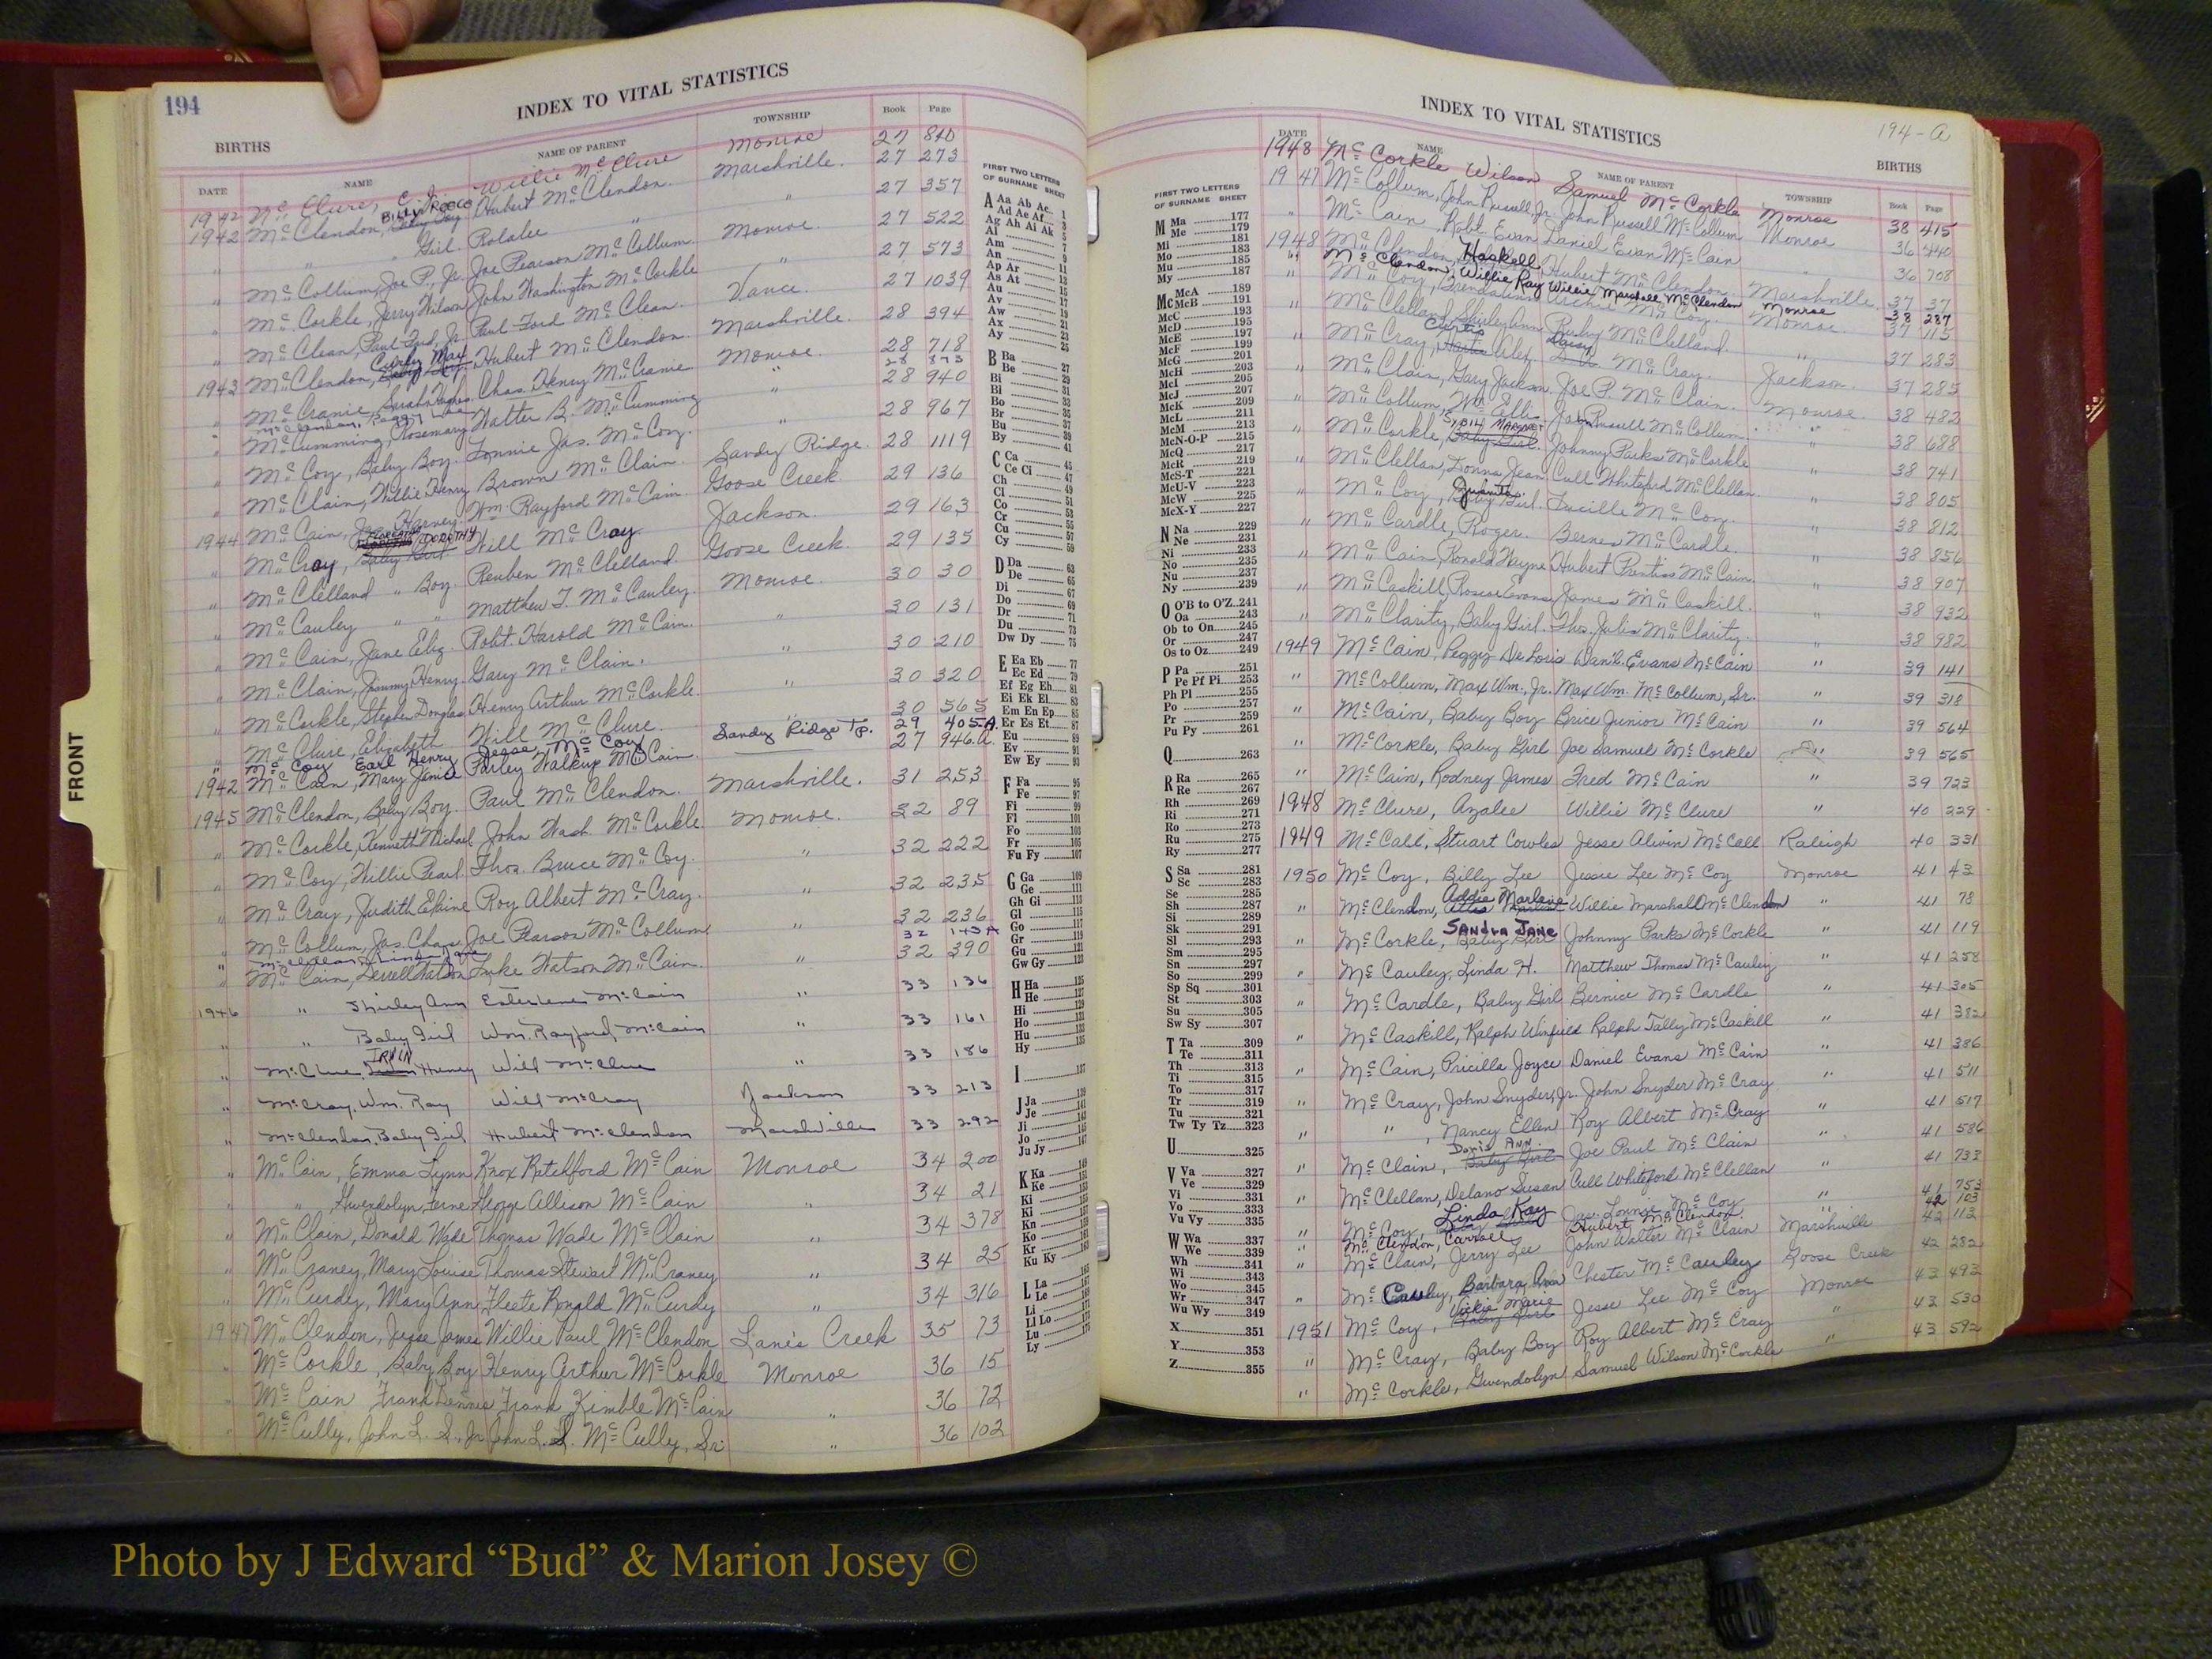 194
INDEX TO VITAL STATISTICS
BIRTHS
DATE NAME NAME OF PARENT TOWNSHIP Book Page
1942 McClure, C. J. Willie McClure Monroe 27 810
BILLY REECE
1942 McClendon, Baby Boy Hubert McClendon Marshville 27 273
" " " Girl Rolalee " " 27 357
" McCollum, Joe P., Jr. Joe Pearson McCollum Monroe 27 522
" McCorkle, Jerry Wilson John Washington McCorkle " 27 573
" McClean, Paul Ford, Jr. Paul Ford McClean Vance 27 1039
Curley Max
1943 McClendon, Baby Boy Hubert McClendon Marshville 28 394
" McCranie, Sarah Hughes Chas. Henry McCranie Monroe 28 718
McClendon, Peggy 28 873
" McCumming, Rosemary Walter B. McCumming " 28 940
" McCoy, Baby Boy Lonnie Jas. McCoy " 28 967
" McClain, Willie Henry Brown McClain Sandy Ridge 28 1119
Harvey
1944 McCain, Wm. Rayford McCain Goose Creek 29 136
DOROTHY
" McCray, Baby Girl Will McCray Jackson 29 163
" McClelland " Boy Reuben McClelland Goose Creek 29 135
" McCauley " " Matthew T. McCauley Monroe 30 30
" McCain, Jane Eliz. Robt. Harold McCain " 30 131
" McClain, Jimmy Henry Gary McClain 30 210
" McCorkle, Stephen Douglas Henry Arthur McCorkle " 30 320
" McClure, Elizabeth Will McClure " 30 565
" McCoy Earl Henry Jesse McCoy Sandy Ridge Tp. 29 405-A
1942 McCain, Mary Janice Farley Walkup McCain 27 946.A
1945 McClendon, Baby Boy Paul McClendon Marshville 31 253
" McCorkle, Kenneth Michael John Wash. McCorkle Monroe 32 89
" McCoy, Willie Pearl Thos. Bruce McCoy " 32 222
" McCray, Judith Elaine Roy Albert McCray " 32 235
" McCollum, Jas. Chas. Joe Pearson McCollum " 32 236
McClellan, Linda Jane 32 143A
" McCain, Derrell Watson Luke Watson McCain " 32 390
1946 " Shirley Ann McCain " 33 136
" " Baby Girl Wm. Rayford McCain " 33 161
IRVIN
" McClure, Henry Will McClure " 33 186
" McCray, Wm. Ray Will McCray Jackson 33 213
" McClendon, Baby Girl Hubert McClendon Marshville 33 292
" McCain, Emma Lynn Knox Ratchford McCain Monroe 34 200
" " Gwendolyn Ferne George Allison McCain " 34 21
" McClain, Donald Wade Thomas Wade McClain " 34 378
" McCraney, Mary Louise Thomas Stewart McCraney " 34 25
" McCurdy, Mary Ann Fleete Ronald McCurdy " 34 316
1947 McClendon, Jesse James Willie Paul McClendon Lanes Creek 35 73
" McCorkle, Baby Boy Henry Arthur McCorkle Monroe 36 15
" McCain Frank Dennis Frank Kimble McCain " 36 72
" McCully, John L. S., Jr. John L. S. McCully, Sr. " 36 102
FIRST TWO LETTERS
OF SURNAME SHEET
A Aa Ab Ac 1
Ad Ae Af 3
Ag Ah Ai Ak 5
Al 7
Am 9
An 11
Ap Ar 13
As At 15
Au 17
Av 19
Aw 21
Ax 23
Ay 25
B Ba 27
Be 29
Bi 31
Bl 33
Bo 35
Br 37
Bu 39
By 41
C Ca 45
Ce Ci 47
Ch 49
Cl 51
Co 53
Cr 55
Cu 57
Cy 59
D Da 63
De 65
Di 67
Do 69
Dr 71
Du 73
Dw Dy 75
E Ea Eb 77
Ec Ed 79
Ef Eg Eh 81
Ei Ek El 83
Em En Ep 85
Er Es Et 87
Eu 89
Ev 91
Ew Ey 93
F Fa 95
Fe 97
Fi 99
Fl 101
Fo 103
Fr 105
Fu Fy 107
G Ga 109
Ge 111
Gh Gi 113
Gl 115
Go 117
Gr 119
Gu 121
Gw Gy 123
H Ha 125
He 127
Hi 129
Ho 131
Hu 133
Hy 135
I 137
J Ja 139
Je 141
Ji 143
Jo 145
Ju Jy 147
K Ka 149
Ke 151
Ki 153
Kl 155
Kn 157
Ko 159
Kr 161
Ku Ky 163
L La 165
Le 167
Li 169
Ll Lo 171
Lu 173
Ly 175
FRONT
INDEX TO VITAL STATISTICS
194-a
BIRTHS
DATE NAME NAME OF PARENT TOWNSHIP Book Page
1948 McCorkle Wilson Samuel McCorkle Monroe 38 415
1947 McCollum, John Russell, Jr. John Russell McCollum Monroe 36 440
" McCain, Robt. Evan Daniel Evan McCain " 36 708
Haskell
1948 McClendon, Hubert McClendon Marshville 37 37
" McClendon, Willie Ray Willie Marshall McClendon Monroe 38 287
" McCoy, Brenda Ann Archie McCoy Monroe 37 115
" McClelland, Shirley Ann Ruby McClelland " 37 283
Curtis Daisy
" McCray, Alex McCray Jackson 37 285
" McClain, Gary Jackson Joe P. McClain Monroe 38 482
" McCollum, Wm. Ellis John Russell McCollum " 38 688
SYBIL MARGRET
" McCorkle, Baby Girl Johnny Parks McCorkle " 38 741
" McClellan, Donna Jean Cull Whiteford McClellan " 38 805
Juanita
" McCoy, Baby Girl Lucille McCoy " 38 812
" McCardle, Roger Bernes McCardle " 38 856
" McCain, Ronald Wayne Hubert Prentiss McCain " 38 907
" McCaskill, Roscoe Evans James McCaskill " 38 932
" McClarity, Baby Girl Thos. Julis McClarity " 38 982
1949 McCain, Peggy De Lois Dan'l. Evans McCain " 39 141
" McCollum, Max Wm., Jr. Max Wm. McCollum, Sr. " 39 318
" McCain, Baby Boy Brice Junior McCain " 39 564
" McCorkle, Baby Girl Joe Samuel McCorkle " 39 565
" McCain, Rodney James Fred McCain " 39 723
1948 McClure, Azalee Willie McClure " 40 229
1949 McCall, Stuart Cowles Jesse Alivin McCall Raleigh 40 331
1950 McCoy, Billy Lee Jessie Lee McCoy Monroe 41 43
Addie Marlene
" McClendon, Willie Marshall McClendon " 41 78
SANDRA JANE
" McCorkle, Baby Girl Johnny Parks McCorkle " 41 119
" McCauley, Linda H. Matthew Thomas McCauley " 41 258
" McCardle, Baby Girl Bernice McCardle " 41 305
" McCaskill, Ralph Winfield Ralph Tally McCaskill " 41 382
" McCain, Pricilla Joyce Daniel Evans McCain " 41 386
" McCray, John Snyder, Jr. John Snyder McCray " 41 511
" " , Nancy Ellen Roy Albert McCray " 41 517
Doris ANN
" McClain, Baby Girl Joe Paul McClain " 41 586
" McClellan, Delano Susan Cull Whiteford McClellan " 41 733
Linda Kay
" McCoy, Baby Girl Jas. Lonnie McCoy " 41 753
" McClendon, Carroll Hubert McClendon 42 103
" McClain, Jerry Lee John Walter McClain Marshville 42 113
" McCauley, Barbara Ann Chester McCauley Goose Creek 42 282
Vickie Marie
1951 McCoy, Baby Girl Jesse Lee McCoy Monroe 43 493
" McCray, Baby Boy Roy Albert McCray " 43 530
" McCorkle, Gwendolyn Samuel Wilson McCorkle " 43 592
FIRST TWO LETTERS
OF SURNAME SHEET
M Ma 177
Me 179
Mi 181
Mo 183
Mu 185
My 187
Mc McA 189
McB 191
McC 193
McD 195
McE 197
McF 199
McG 201
McH 203
McI 205
McJ 207
McK 209
McL 211
McM 213
McN-O-P 215
McQ 217
McR 219
McS-T 221
McU-V 223
McW 225
McX-Y 227
N Na 229
Ne 231
Ni 233
No 235
Nu 237
Ny 239
O O'B to O'Z 241
Oa 243
Ob to On 245
Or 247
Os to Oz 249
P Pa 251
Pe Pf Pi 253
Ph Pl 255
Po 257
Pr 259
Pu Py 261
Q 263
R Ra 265
Re 267
Rh 269
Ri 271
Ro 273
Ru 275
Ry 277
S Sa 281
Sc 283
Se 285
Sh 287
Si 289
Sk 291
Sl 293
Sm 295
Sn 297
So 299
Sp Sq 301
St 303
Su 305
Sw Sy 307
T Ta 309
Te 311
Th 313
Ti 315
To 317
Tr 319
Tu 321
Tw Ty Tz 323
U 325
V Va 327
Ve 329
Vi 331
Vo 333
Vu Vy 335
W Wa 337
We 339
Wh 341
Wi 343
Wo 345
Wr 347
Wu Wy 349
X 351
Y 353
Z 355
Photo by J Edward “Bud” & Marion Josey ©